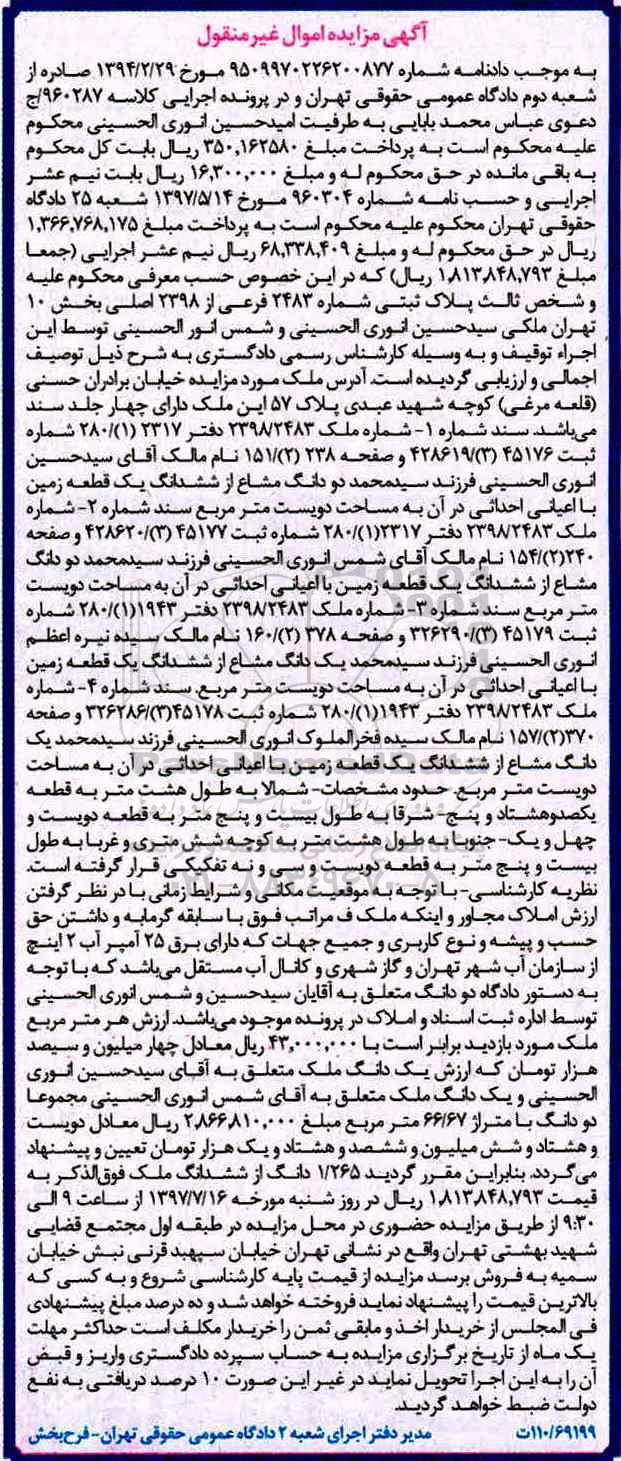 آگهی مزایده اموال غیر منقول
به موجب دادنامه شماره ۹۵۰۹۹۷۰۲۲۶۲۰۰۸۷۷ مورخ ۱۳۹۴/۲/۲۹ صادره از
شعبه دوم دادگاه عمومی حقوقی تهران و در پرونده اجرایی کلاسه ۹۶۰۲۸۷/ج
دعوی عباس محمد بابایی به طرفیت امیدحسین انوری الحسینی محکوم
علیه محکوم است به پرداخت مبلغ ۳۵۰,۱۶۲۵۸۰ ریال بابت کل محکوم
به باقی مانده در حق محکوم له و مبلغ ۱۶,۳۰۰,۰۰۰ ریال بابت نیم عشر
اجرایی و حسب نامه شماره ۹۶۰۳۰۴ مورخ ۱۳۹۷/۵/۱۴ شعبه ۲۵ دادگاه
حقوقی تهران محکوم علیه محکوم است به پرداخت مبلغ ۱,۳۶۶,۷۶۸,۱۷۵
ریال در حق محکوم له و مبلغ ۶۸,۳۳۸,۴۰۹ ریال نیم عشر اجرایی (جمعا
مبلغ ۱,۸۱۳,۸۴۸,۷۹۳ ریال) که در این خصوص حسب معرفی محکوم علیه
و شخص ثالث پلاک ثبتی شماره ۲۴۸۳ فرعی از ۲۳۹۸ اصلی بخش ۱۰
تهران ملکی سیدحسین انوری الحسینی و شمس انور الحسینی توسط این
اجراء توقیف و به وسیله کارشناس رسمی دادگستری به شرح ذیل توصیف
اجمالی و ارزیابی گردیده است. آدرس ملک مورد مزایده خیابان برادران حسنی
(قلعه مرغی) کوچه شهید عبدی پلاک ۵۷ این ملک دارای چهار جلد سند
می‌باشد. سند شماره ۱- شماره ملک ۲۳۹۸/۲۴۸۳ دفتر ۲۳۱۷ (۱)/۲۸۰ شماره
ثبت ۴۵۱۷۶ (۳)/۴۲۸۶۱۹ و صفحه ۲۳۸ (۲)/۱۵۱ نام مالک آقای سیدحسین
انوری الحسینی فرزند سیدمحمد دو دانگ مشاع از ششدانگ یک قطعه زمین
با اعیانی احداثی در آن به مساحت دویست متر مربع سند شماره ۲- شماره
ملک ۲۳۹۸/۲۴۸۳ دفتر ۲۳۱۷(۱)/۲۸۰ شماره ثبت ۴۵۱۷۷ (۳)/۴۲۸۶۲۰ و صفحه
۲۴۰(۲)/۱۵۴ نام مالک آقای شمس انوری الحسینی فرزند سیدمحمد دو دانگ
مشاع از ششدانگ یک قطعه زمین با اعیانی احداثی در آن به مساحت دویست
متر مربع سند شماره ۳- شماره ملک ۲۳۹۸/۲۴۸۳ دفتر ۱۹۴۳(۱)/۲۸۰ شماره
ثبت ۴۵۱۷۹ (۳)/۳۲۶۲۹۰ و صفحه ۳۷۸ (۲)/۱۶۰ نام مالک سیده نیره اعظم
انوری الحسینی فرزند سیدمحمد یک دانگ مشاع از ششدانگ یک قطعه زمین
با اعیانی احداثی در آن به مساحت دویست متر مربع. سند شماره ۴- شماره
ملک ۲۳۹۸/۲۴۸۳ دفتر ۱۹۴۳(۱)/۲۸۰ شماره ثبت ۴۵۱۷۸(۳)/۳۲۶۲۸۶ و صفحه
۳۷۰(۲)/۱۵۷ نام مالک سیده فخرالملوک انوری الحسینی فرزند سیدمحمد یک
دانگ مشاع از ششدانگ یک قطعه زمین با اعیانی احداثی در آن به مساحت
دویست متر مربع. حدود مشخصات- شمالا به طول هشت متر به قطعه
یکصدوهشتاد و پنج- شرقا به طول بیست و پنج متر به قطعه دویست و
چهل و یک- جنوبا به طول هشت متر به کوچه شش متری و غربا به طول
بیست و پنج متر به قطعه دویست و سی و نه تفکیکی قرار گرفته است.
نظریه کارشناسی- با توجه به موقعیت مکانی و شرایط زمانی با در نظر گرفتن
ارزش املاک مجاور و اینکه ملک ف مراتب فوق با سابقه گرمابه و داشتن حق
حسب و پیشه و نوع کاربری و جمیع جهات که دارای برق ۲۵ آمپر آب ۲ اینچ
از سازمان آب شهر تهران و گاز شهری و کانال آب مستقل می‌باشد که با توجه
به دستور دادگاه دو دانگ متعلق به آقایان سیدحسین و شمس انوری الحسینی
توسط اداره ثبت اسناد و املاک در پرونده موجود می‌باشد. ارزش هر متر مربع
ملک مورد بازدید برابر است با ۴۳,۰۰۰,۰۰۰ ریال معادل چهار میلیون و سیصد
هزار تومان که ارزش یک دانگ ملک متعلق به آقای سیدحسین انوری
الحسینی و یک دانگ ملک متعلق به آقای شمس انوری الحسینی مجموعا
دو دانگ با متراژ ۶۶/۶۷ متر مربع مبلغ ۲,۸۶۶,۸۱۰,۰۰۰ ریال معادل دویست
و هشتاد و شش میلیون و ششصد و هشتاد و یک هزار تومان تعیین و پیشنهاد
می‌گردد. بنابراین مقرر گردید ۱/۲۶۵ دانگ از ششدانگ ملک فوق‌الذکر به
قیمت ۱,۸۱۳,۸۴۸,۷۹۳ ریال در روز شنبه مورخه ۱۳۹۷/۷/۱۶ از ساعت ۹ الی
۹:۳۰ از طریق مزایده حضوری در محل مزایده در طبقه اول مجتمع قضایی
شهید بهشتی تهران واقع در نشانی تهران خیابان سپهبد قرنی نبش خیابان
سمیه به فروش برسد مزایده از قیمت پایه کارشناسی شروع و به کسی که
بالاترین قیمت را پیشنهاد نماید فروخته خواهد شد و ده درصد مبلغ پیشنهادی
فی المجلس از خریدار اخذ و مابقی ثمن را خریدار مکلف است حداکثر مهلت
یک ماه از تاریخ برگزاری مزایده به حساب سپرده دادگستری واریز و قبض
آن را به این اجرا تحویل نماید در غیر این صورت ۱۰ درصد دریافتی به نفع
دولت ضبط خواهد گردید.
۱۱۰/۶۹۱۹۹ت مدیر دفتر اجرای شعبه ۲ دادگاه عمومی حقوقی تهران- فرح‌بخش